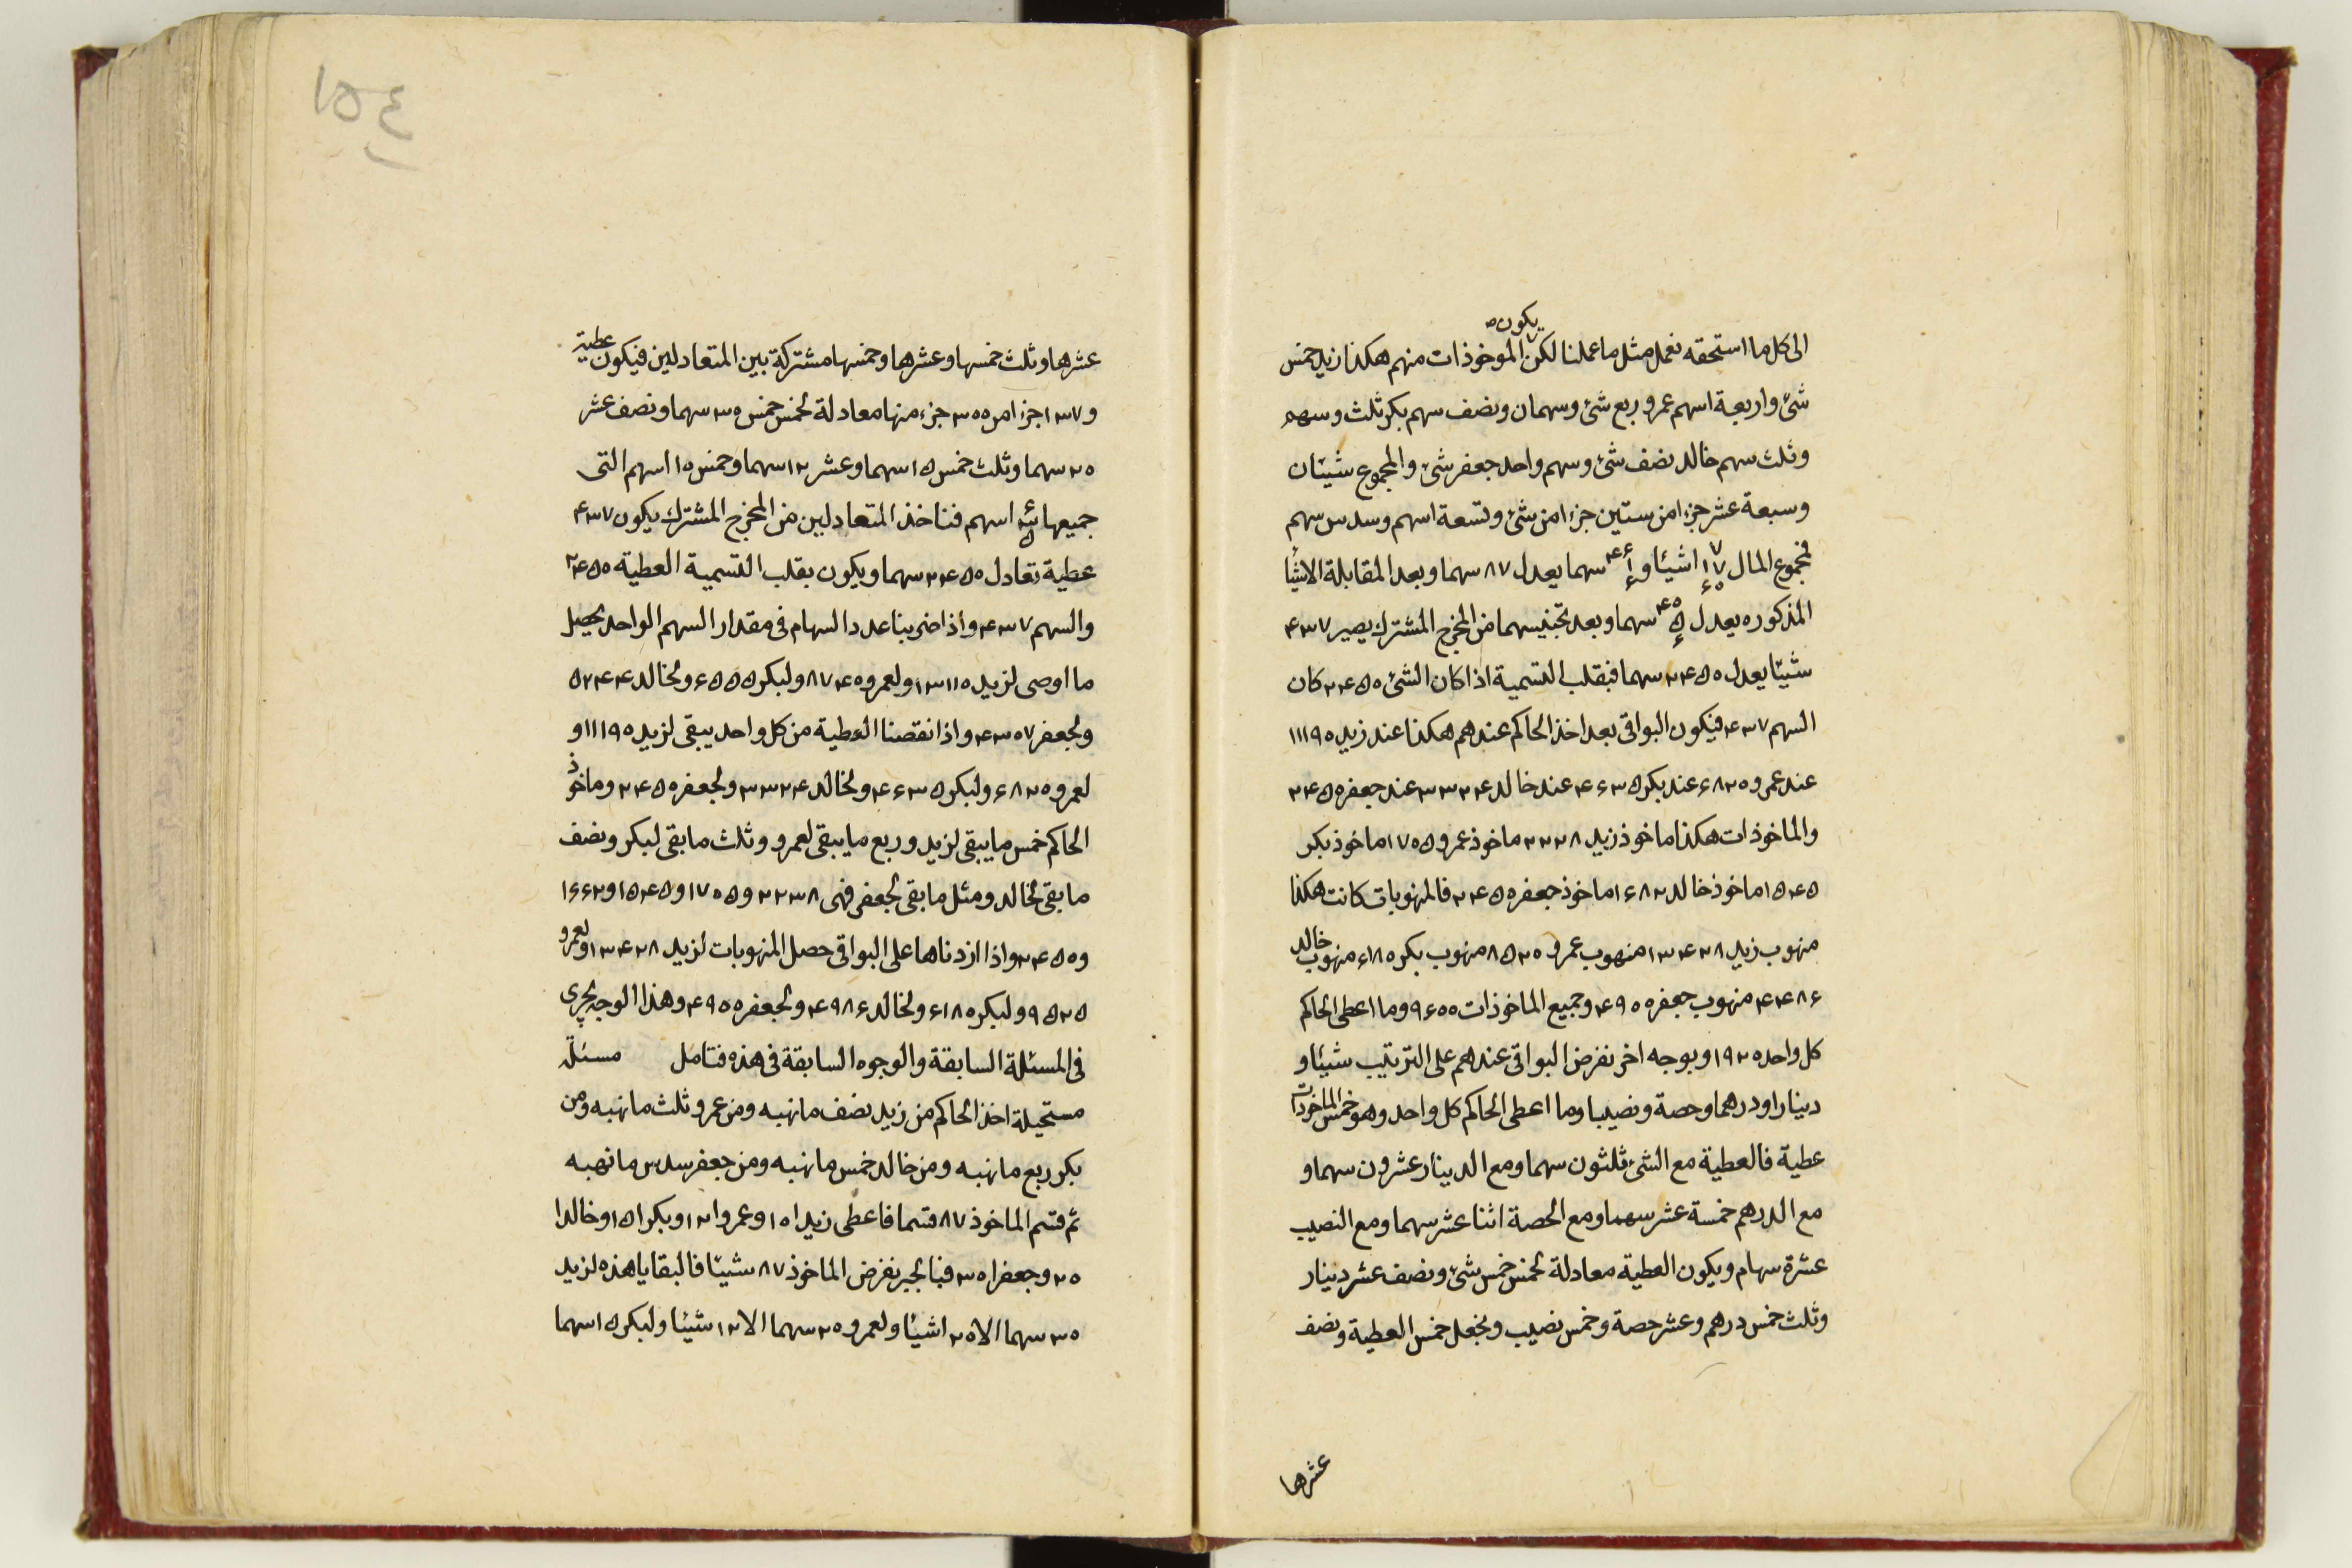 يكون
الى كل ما استحقه نعمل مثل ما عملنا لكن الموخوذات منهم هكذا زيد خمس
شئ واربعة اسهم عمرو ربع شئ وسهمان ونصف سهم بكر ثلث وسهم
وثلث سهم خالد نصف شئ وسهم واحد جعفر شئ والمجموع شيئان
وسبعة عشر جزءا من ستين جزءا من شئ وتسعة اسهم وسدس سهم
فمجموع المال اشيئا و سهما يعدل ٨٧ سهما وبعد المقابلة الاشيا
المذكوره يعدل سهما وبعد تجنيسهما من المخرج المشترك يصير ٤٣٧
شيئا يعدل ٢٤٥٥ سهما فبقلب التسمية اذا كان الشئ ٢٤٥٥ كان
السهم ٤٣٧ فيكون البواقى بعد اخذ الحاكم عندهم هكذا عند زيد ١١١٩٥
عند عمرو ٦٨٢٥ عند بكر ٤٦٣٥ عند خالد ٣٣٢٤ عند جعفر ٢٤٥٥
والماخوذات هكذا ماخوذ زيد ٢٢٣٨ ماخوذ عمرو ١٧٥٥ ماخوذ بكر
١٥٤٥ ماخوذ خالد ١٦٨٢ ماخوذ جعفر ٢٤٥٥ فالمنهوبات كانت هكذا
منهوب زيد ١٣٤٢٨ منهوب عمرو ٨٥٢٥ منهوب بكر ٦١٨٥ منهوب خالد
٤٤٨٦ منهوب جعفر ٤٩٥٥ وجميع الماخوذات ٩٦٥٥ وما اعطى الحاكم
كل واحد ١٩٢٥ وبوجه اخر نفرض البواقى عندهم على الترتيب شيئا و
دينارا ودرهما وحصة ونصيبا وما اعطى الحاكم كل واحد وهو خمس الماخوذات
عطية فالعطية مع الشئ ثلثون سهما ومع الدينار عشرون سهما و
مع الدرهم خمسة عشر سهما ومع الحصة اثنا عشر سهما ومع النصيب
عشرة سهام ويكون العطية معادلة لخمس خمس شئ ونصف عشر دينار
وثلث خمس درهم وعشر حصة وخمس نصيب ونجعل خمس العطية ونصف
عشرها
١٥٤
عشرها وثلث خمسها وعشرها وخمسها مشتركة بين المتعادلين فيكون عطية
و١٣٧ جزءا من ٣٥٥ جزء منها معادلة لخمس خمس ٣٥ سهما ونصف عشر
٢٥ سهما وثلث خمس ١٥ سهما وعشر ١٢ سهما وخمس ١٥ اسهم التى
جميعها اسهم فناخذ المتعادلين من المخرج المشترك يكون ٤٣٧
عطية تعادل ٢٤٥٥ سهما ويكون بقلب التسمية العطية ٢٤٥٥
والسهم ٤٣٧ واذا ضربنا عدد السهام فى مقدار السهم الواحد يحصل
ما اوصى لزيد ١٣١١٥ ولعمرو ٨٧٤٥ ولبكر ٦٥٥٥ ولخالد ٥٢٤٤
ولجعفر ٤٣٥٧ واذا نقصنا العطية من كل واحد يبقى لزيد ١١١٩٥ و
لعمرو ٦٨٢٥ ولبكر ٤٦٣٥ ولخالد ٣٣٢٤ ولجعفر ٢٤٥٥ وماخوذ
الحاكم خمس ما يبقى لزيد وربع ما يبقى لعمرو وثلث ما بقى لبكر ونصف
ما بقى لخالد ومثل ما بقى لجعفر فهى ٢٢٣٨ و١٧٥٥ و١٥٤٥ و١٦٦٢
و٢٤٥٥ واذا ازدناها على البواقى حصل المنهوبات لزيد ١٣٤٢٨ ولعمرو
٩٥٢٥ ولبكر ٦١٨٥ ولخالد ٤٩٨٦ ولجعفر ٤٩٥٥ وهذا الوجه يجرى
فى المسئلة السابقة والوجوه السابقة فى هذه فتامل مسئلة
مستحيلة اخذ الحاكم من زيد نصف ما نهبه ومن عمرو ثلث ما نهبه ومن
بكر ربع ما نهبه ومن خالد خمس ما نهبه ومن جعفر سدس ما نهبه
ثم قسم الماخوذ ٨٧ قسما فاعطى زيدا ١٥ وعمروا ١٢ وبكرا ١٥ وخالدا
٢٥ وجعفرا ٣٥ فبالجبر نفرض الماخوذ ٨٧ شيئا فالبقايا هذه لزيد
٣٥ سهما الا ٢٥ اشيئا ولعمرو ٢٥ سهما الا ١٢ شيئا ولبكر ١٥ سهما